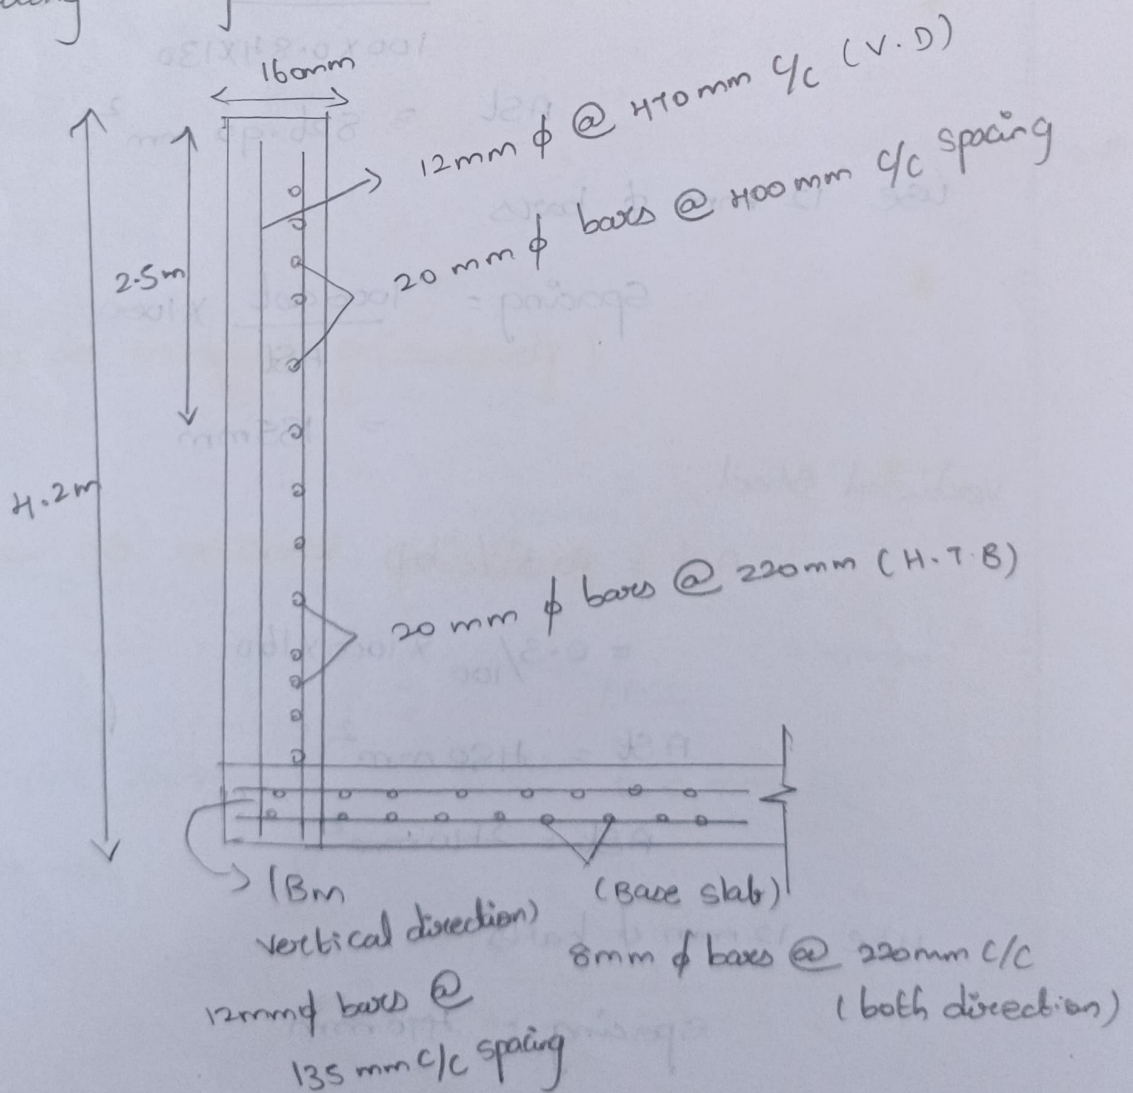 160mm
12mm ϕ @ 470mm c/c (V.D)
20 mm ϕ bars @ 400mm c/c spacing
2.5m
4.2m
20 mm ϕ bars @ 220mm (H.T.B)
(Bm
vertical direction)
12mmϕ bars @
135 mm c/c spacing
(Base slab)
8mm ϕ bars @ 220mm c/c
(both direction)